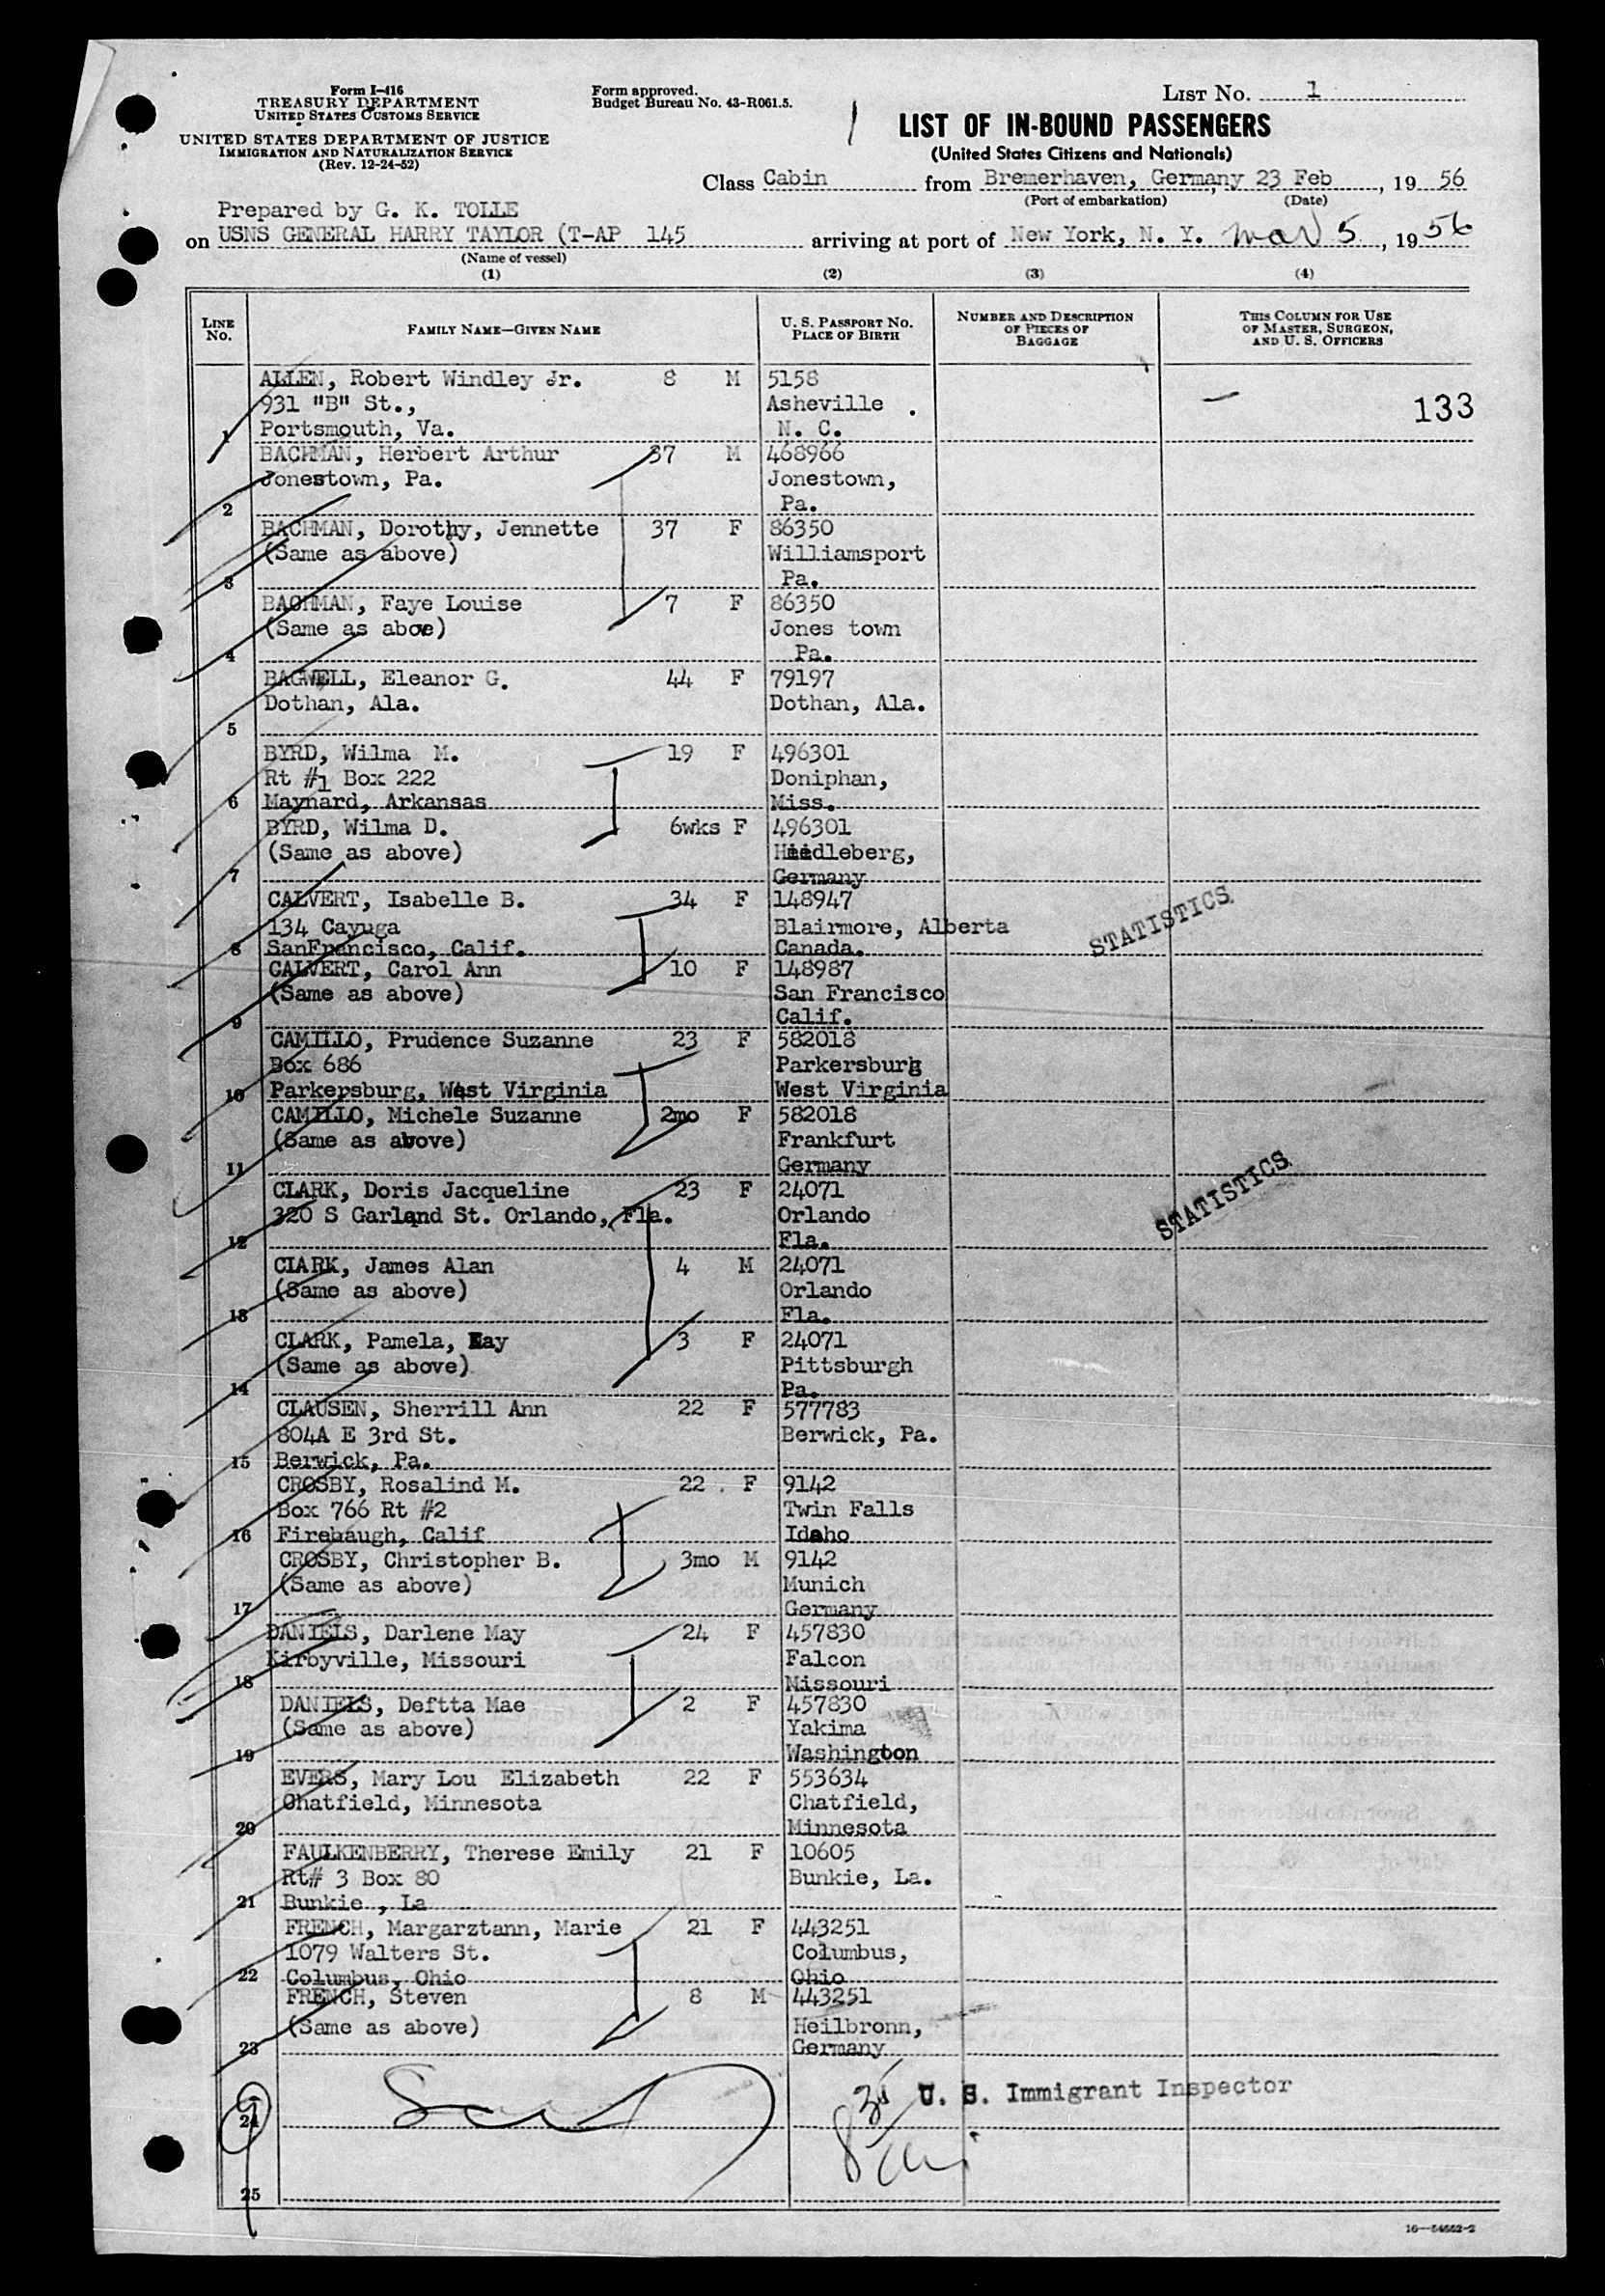 Form I-416
TREASURY DEPARTMENT
UNITED STATES CUSTOMS SERVICE
UNITED STATES DEPARTMENT OF JUSTICE
IMMIGRATION AND NATURALIZATION SERVICE
(Rev. 12-24-52)
Form approved.
Budget Bureau No. 43-R061.5.
LIST NO. 1
LIST OF IN-BOUND PASSENGERS
(United States Citizens and Nationals)
Class Cabin from Bremerhaven, Germany 23 Feb, 19 56
(Port of embarkation) (Date)
Prepared by G. K. TOLLE
on USNS GENERAL HARRY TAYLOR (T-AP 145 arriving at port of New York, N. Y. Mar 5, 1956
(Name of vessel)
(1) (2) (3) (4)
LINE NO.
FAMILY NAME—GIVEN NAME
U. S. PASSPORT NO.
PLACE OF BIRTH
NUMBER AND DESCRIPTION
OF PIECES OF
BAGGAGE
THIS COLUMN FOR USE
OF MASTER, SURGEON,
AND U. S. OFFICERS
ALLEN, Robert Windley Jr. 8 M 5158
931 "B" St., Asheville 133
1 Portsmouth, Va. N. C.
BACHMAN, Herbert Arthur 37 M 468966
Jonestown, Pa. Jonestown,
2 Pa.
BACHMAN, Dorothy, Jennette 37 F 86350
(Same as above) Williamsport
3 Pa.
BACHMAN, Faye Louise 7 F 86350
(Same as above) Jones town
4 Pa.
BAGWELL, Eleanor G. 44 F 79197
Dothan, Ala. Dothan, Ala.
5
BYRD, Wilma M. 19 F 496301
Rt #1 Box 222 Doniphan,
6 Maynard, Arkansas Miss.
BYRD, Wilma D. 6wks F 496301
(Same as above) Hiedleberg,
7 Germany
CALVERT, Isabelle B. 34 F 148947
134 Cayuga Blairmore, Alberta
8 SanFrancisco, Calif. Canada.
STATISTICS
CALVERT, Carol Ann 10 F 148987
(Same as above) San Francisco
9 Calif.
CAMILLO, Prudence Suzanne 23 F 582018
Box 686 Parkersburg
10 Parkersburg, West Virginia West Virginia
CAMILLO, Michele Suzanne 2mo F 582018
(Same as above) Frankfurt
11 Germany
CLARK, Doris Jacqueline 23 F 24071
320 S Garland St. Orlando, Fla. Orlando
12 Fla.
STATISTICS
CLARK, James Alan 4 M 24071
(Same as above) Orlando
13 Fla.
CLARK, Pamela, Kay 3 F 24071
(Same as above) Pittsburgh
14 Pa.
CLAUSEN, Sherrill Ann 22 F 577783
804A E 3rd St. Berwick, Pa.
15 Berwick, Pa.
CROSBY, Rosalind M. 22 F 9142
Box 766 Rt #2 Twin Falls
16 Firebaugh, Calif Idaho
CROSBY, Christopher B. 3mo M 9142
(Same as above) Munich
17 Germany
DANIELS, Darlene May 24 F 457830
Kirbyville, Missouri Falcon
18 Missouri
DANIELS, Deftta Mae 2 F 457830
(Same as above) Yakima
19 Washington
EVERS, Mary Lou Elizabeth 22 F 553634
Chatfield, Minnesota Chatfield,
20 Minnesota
FAULKENBERRY, Therese Emily 21 F 10605
Rt# 3 Box 80 Bunkie, La.
21 Bunkie , La
FRENCH, Margarztann, Marie 21 F 443251
1079 Walters St. Columbus,
22 Columbus, Ohio Ohio
FRENCH, Steven 8 M 443251
(Same as above) Heilbronn,
23 Germany
U. S. Immigrant Inspector
24
25
16—54652-2